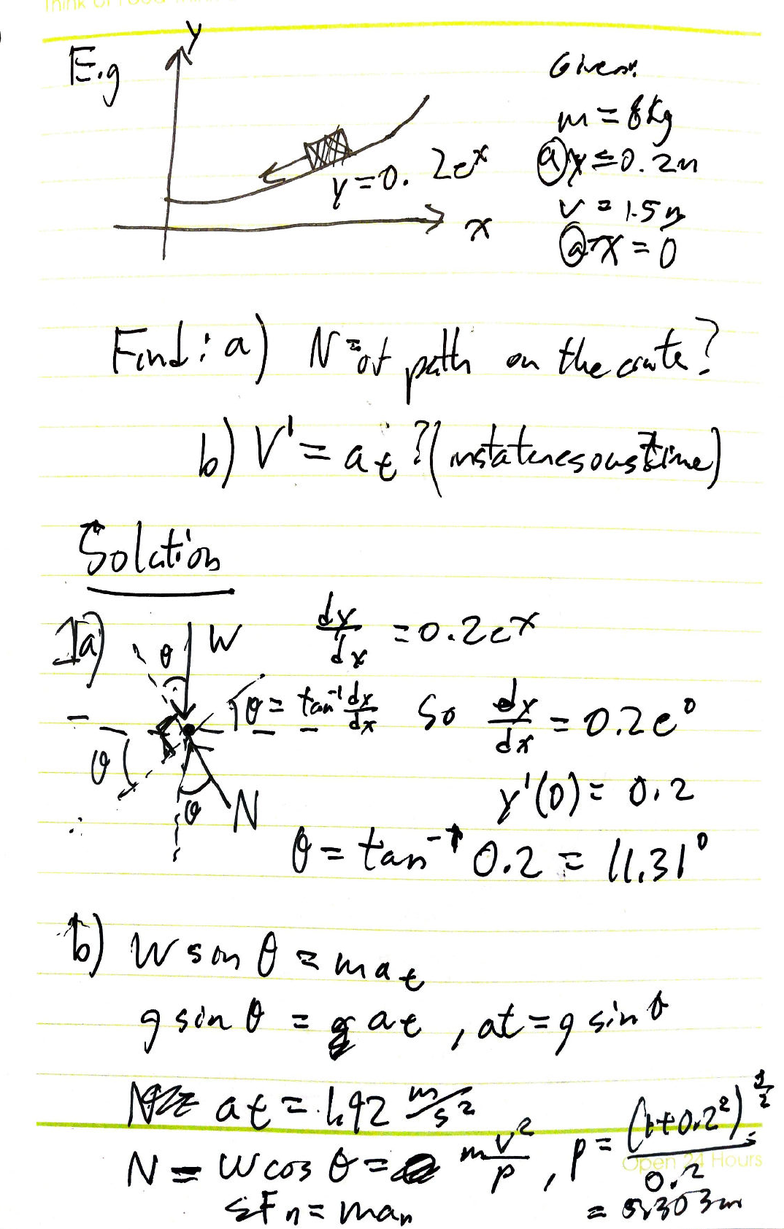 E.g
y
y=0.2e^x
x
Given:
m = 8kg
@ y = 0.2m
v = 1.5 m
@ x = 0
Find: a) N of path on the crate?
b) V' = a_t? (instateneousetime)
Solution
1a) θ W
dy/dx = 0.2e^x
θ = tan^-1 dy/dx So dy/dx = 0.2e^0
θ
y'(0) = 0.2
θ N
θ = tan^-1 0.2 = 11.31°
b) W sin θ = ma_t
g sin θ = a_t, at = g sin θ
a_t = 1.92 m/s^2
N - W cos θ = m v^2/ρ, ρ = (1+0.2^2)^3/2 / 0.2
ΣF_n = ma_n
= 5.303m
Open 24 Hours